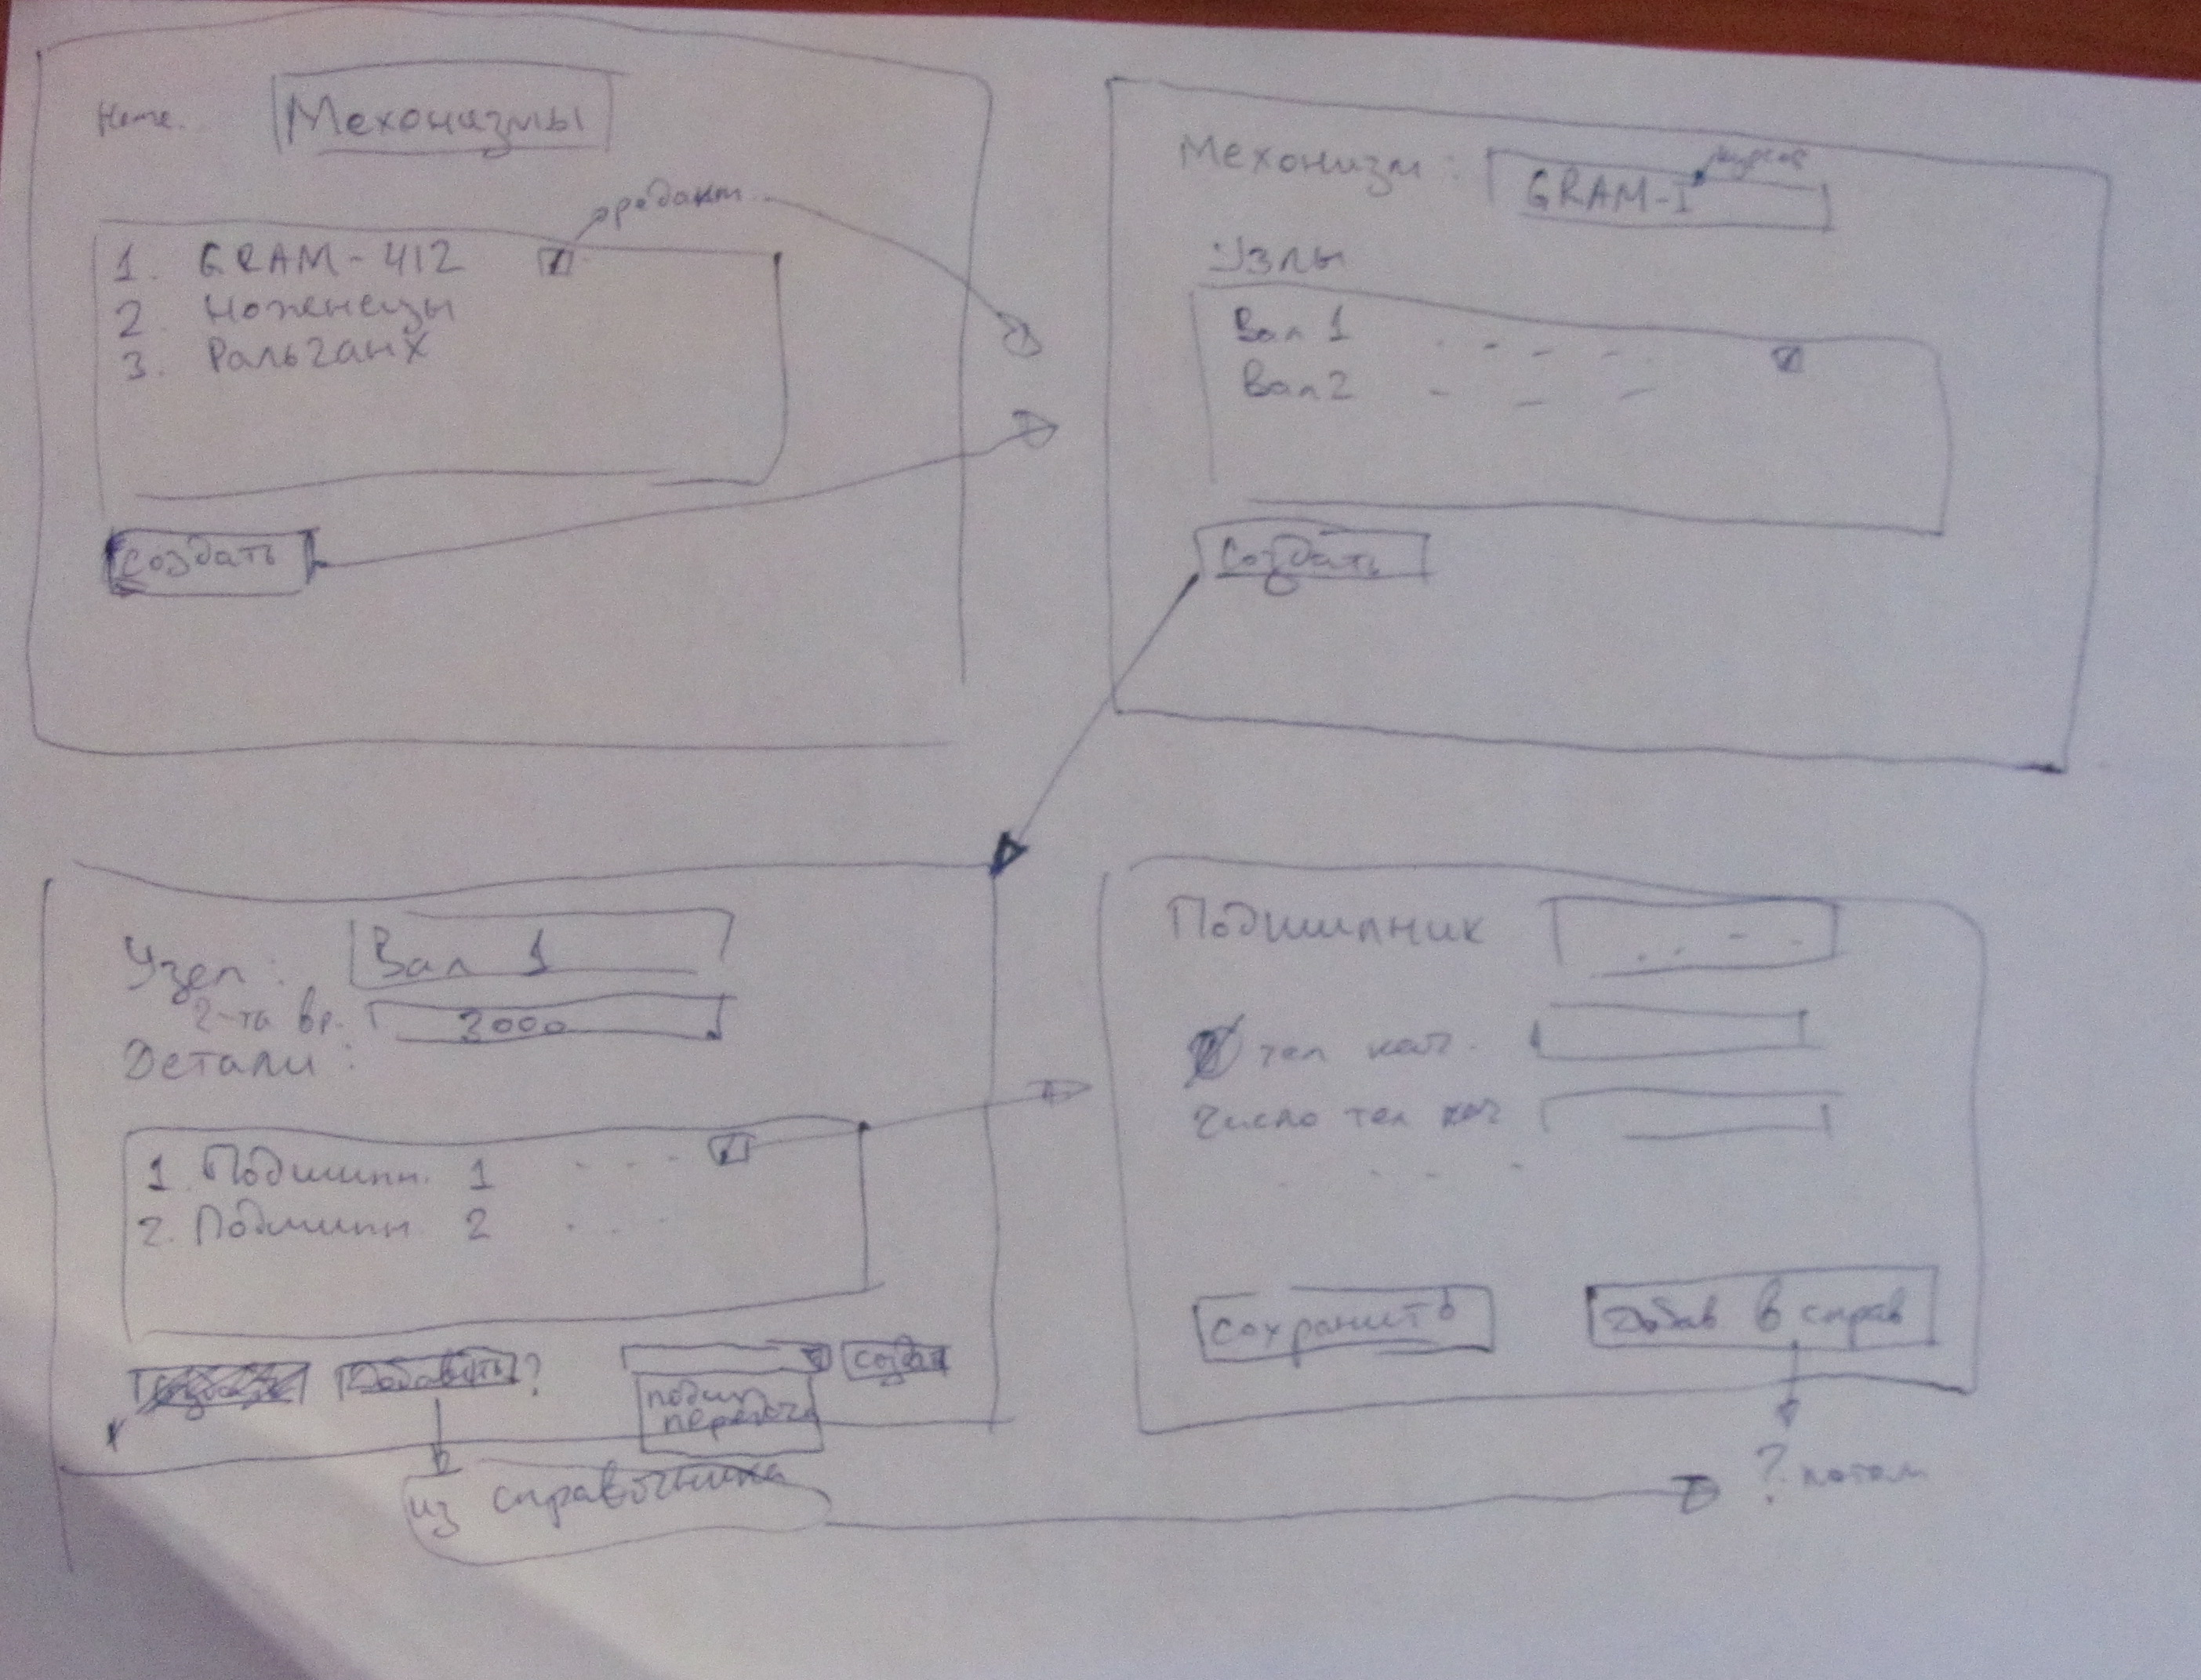 Home.
Мехонизмы
редакт.
1. GRAM-412
2. Ноженицы
3. Ральганх
Создать
Мехонизм:
GRAM-I
Узлы
Вал 1
Вал 2
Создать
Узел: Вал 1
2-та вр. 3000
Детали:
1. Подшипн. 1
2. Подшипн. 2
Добавить?
подш
передач
из справочника
Подшипник
тел кач.
Число тел кач
Сохранить
Добав в справ
? потом